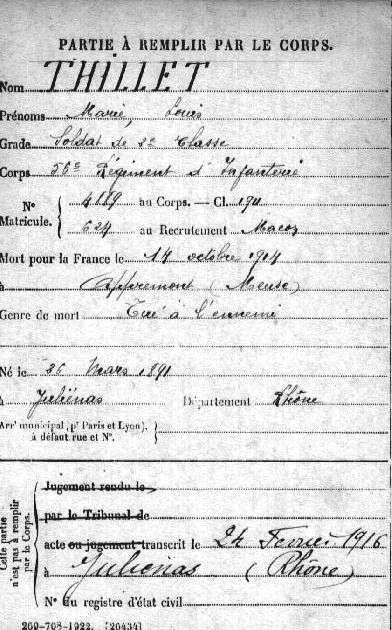 PARTIE À REMPLIR PAR LE CORPS.
Nom THILLET
Prénoms Marie, Louis
Grade Soldat de 2e Classe
Corps 56e Régiment d'Infanterie
N° Matricule. { 4189 au Corps. — Cl. 1911
624 au Recrutement Macon
Mort pour la France le 14 octobre 1914
à Appremont (Meuse)
Genre de mort Tué à l'ennemi
Né le 26 Mars 1891
à Juliénas Département Rhône
Arrt municipal (pr Paris et Lyon), à défaut rue et N°. }
Cette partie n'est pas à remplir par le Corps.
Jugement rendu le
par le Tribunal de
acte ou jugement transcrit le 24 Fevrier 1916
à Julienas (Rhône)
N° du registre d'état civil
260-708-1922. [26434]